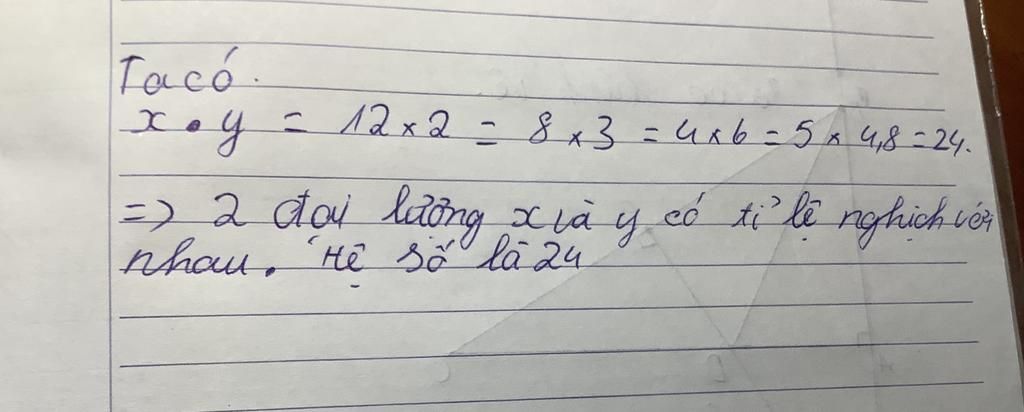 Ta có.
x . y = 12 x 2 = 8 x 3 = 4 x 6 = 5 x 4,8 = 24.
=> 2 đại lượng x và y có tỉ lệ nghịch với
nhau. Hệ số là 24